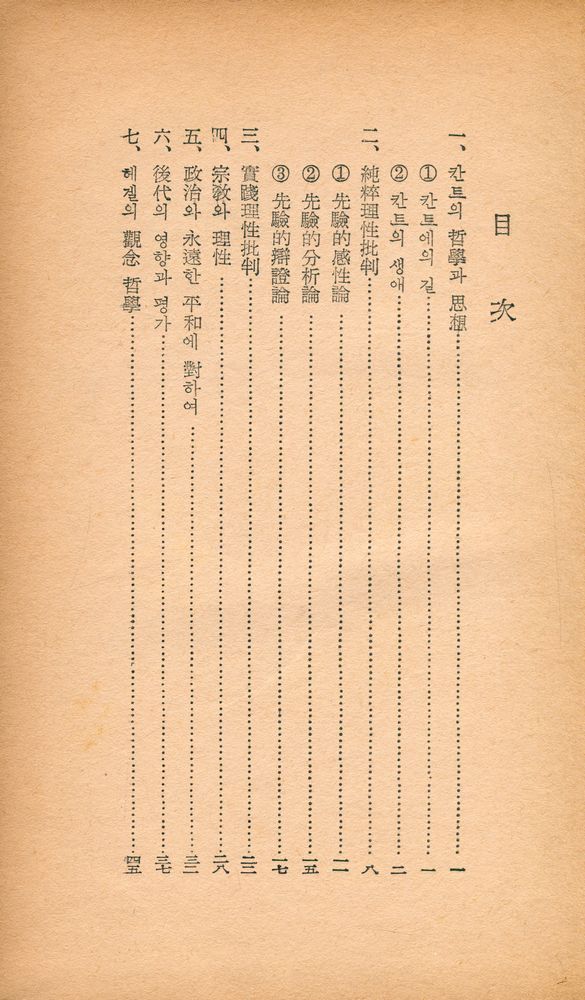 目次
一、칸트의 哲學과 思想 一
① 칸트에의 길 一
② 칸트의 생애 二
二、純粹理性批判 八
① 先驗的感性論 一一
② 先驗的分析論 一五
③ 先驗的辯證論 一七
三、實踐理性批判 二三
四、宗敎와 理性 二八
五、政治와 永遠한 平和에 對하여 三二
六、後代의 영향과 평가 三七
七、헤겔의 觀念 哲學 四五